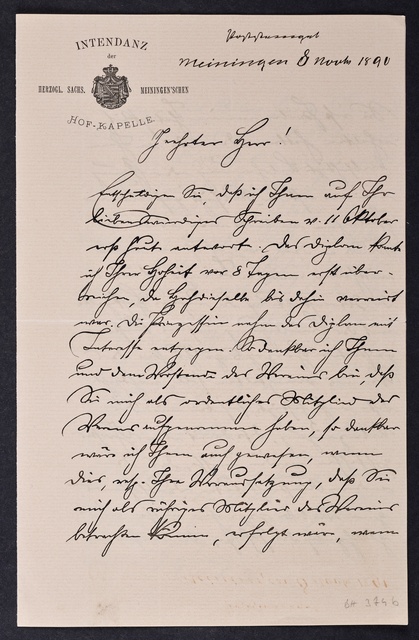 INTENDANZ
der
HERZOGL. SACHS. MEININGEN'SCHEN
HOF-KAPELLE.
Meiningen 8 Novbr 1890
Geehrter Herr!
Entschuldigen Sie, daß ich Ihnen auf Ihr
liebenswürdiges Schreiben v. 11 Oktober
erst heute antwort. Das Diplom konnte
ich Ihrer Hoheit vor 8 Tagen erst über-
reichen, da Hochdieselbe bis dahin verreist
war. Die Prinzessin nahm das Diplom mit
Interesse entgegen. So dankbar ich Ihnen
und dem Vorstande des Vereins bin, daß
Sie mich als ordentliches Mitglied des
Vereins aufgenommen haben, so dankbar
wäre ich Ihnen auch gewesen, wenn
dies, resp. Ihre Voraussetzung, daß Sie
mich als rühriges Mitglied des Vereins
betrachten können, erfolgt wäre, wenn